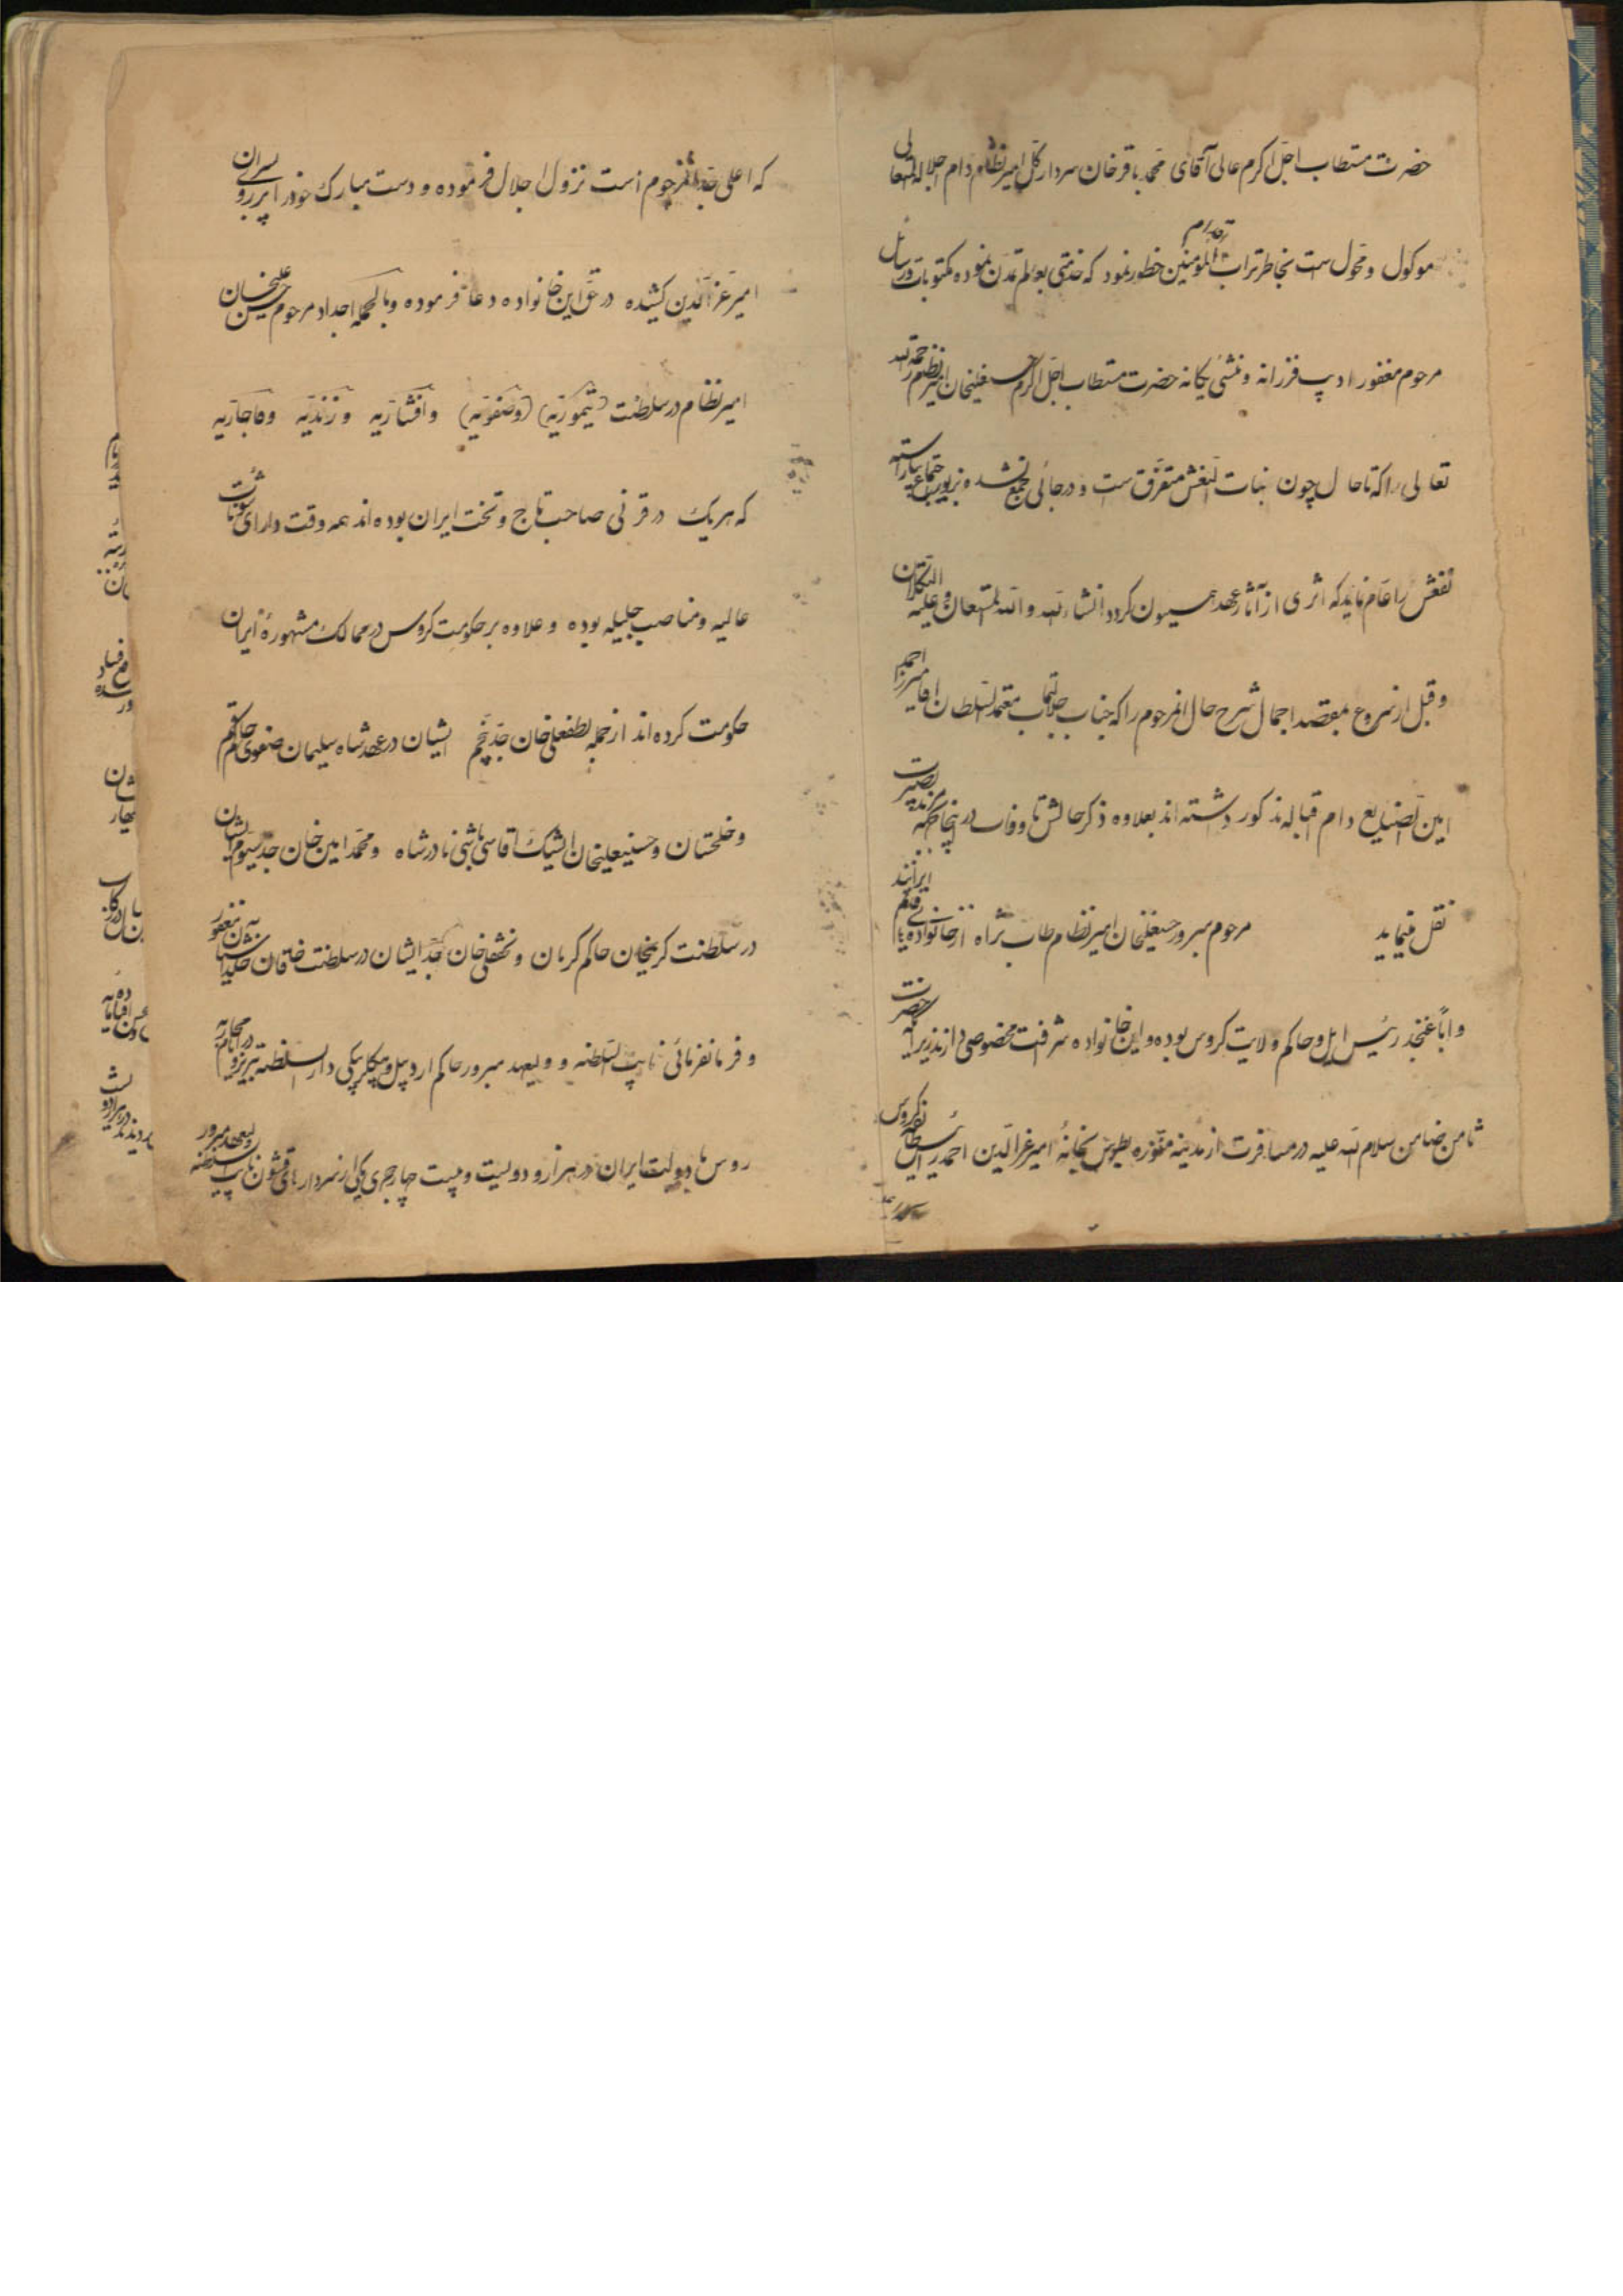 حضرت مستطاب اجل اکرم عالی آقای محمد باقر خان سردار کل امیر نظام دام اجلاله المتعالی
موکول و محول است بخاطر تراب اقدام المومنین خطور نمود که خدمتی بعالم تمدن نموده مکتوبات و رسایل
مرحوم مغفور ادیب فرزانه و منشی یگانه حضرت مستطاب اجل اکرم حسنعلیخان امیر نظام رحمه الله
تعالی را که تا حال چون بنات النعش متفرق است و در جائی جمع نشده بزیور اجتماع بیاراسته
نفعش را عام نماید که اثری از آثار عهد همیسیون گردد انشاء الله و الله المستعان و علیه التکلان
و قبل از شروع بمقصد اجمال شرح حال آنمرحوم را که جناب جلالتمآب معتمد السلطان آقا میرزا احمد
امین الصنایع دام اقباله مذکور داشته اند بعلاوه ذکر حالش تا وفات در اینجا مزید بصیرت
نقل مینماید مرحوم مبرور حسنعلیخان امیر نظام طاب ثراه از خانواده های قدیم ایرانند
و اباً عنجد رئیس ایل و حاکم ولایت کروس بوده و این خانواده شرافت مخصوصی دارند زیرا که حضرت
ثامن ضامن سلام الله علیه در مسافرت از مدینه منوره بطوس بخانهٔ امیر عز الدین احمد
که اعلی جد آنمرحوم است نزول اجلال فرموده و دست مبارک خود را بر روی پسران
امیر عز الدین کشیده در حق این خانواده دعا فرموده و بالجمله اجداد مرحوم حسنعلیخان
امیر نظام در سلطنت (تیموریه) (و صفویه) و افشاریه و زندیه و قاجاریه
که هر یک در قرنی صاحب تاج و تخت ایران بوده اند همه وقت دارای شئونات
عالیه و مناصب جلیله بوده و علاوه بر حکومت کروس در ممالک مشهورهٔ ایران
حکومت کرده اند از جمله لطفعلی خان جد پنجم ایشان در عهد شاه سلیمان صفوی حاکم قم
و خلجستان و حسینعلیخان ایشیک آقاسی باشی نادر شاه و محمد امین خان جد سیوم ایشان
در سلطنت کریمخان حاکم کرمان و نجفقلی خان جد ایشان در سلطنت خاقان خلد آشیان
و فرمانفرمائی نایب السلطنه و ولیعهد مبرور حاکم اردبیل و بیگلربیگی دار السلطنه تبریز و در ایام محاربه
روس با دولت ایران در هزار و دویست و بیست چهار هجری یکی از سردارهای قشون نایب السلطنه ولیعهد مبرور